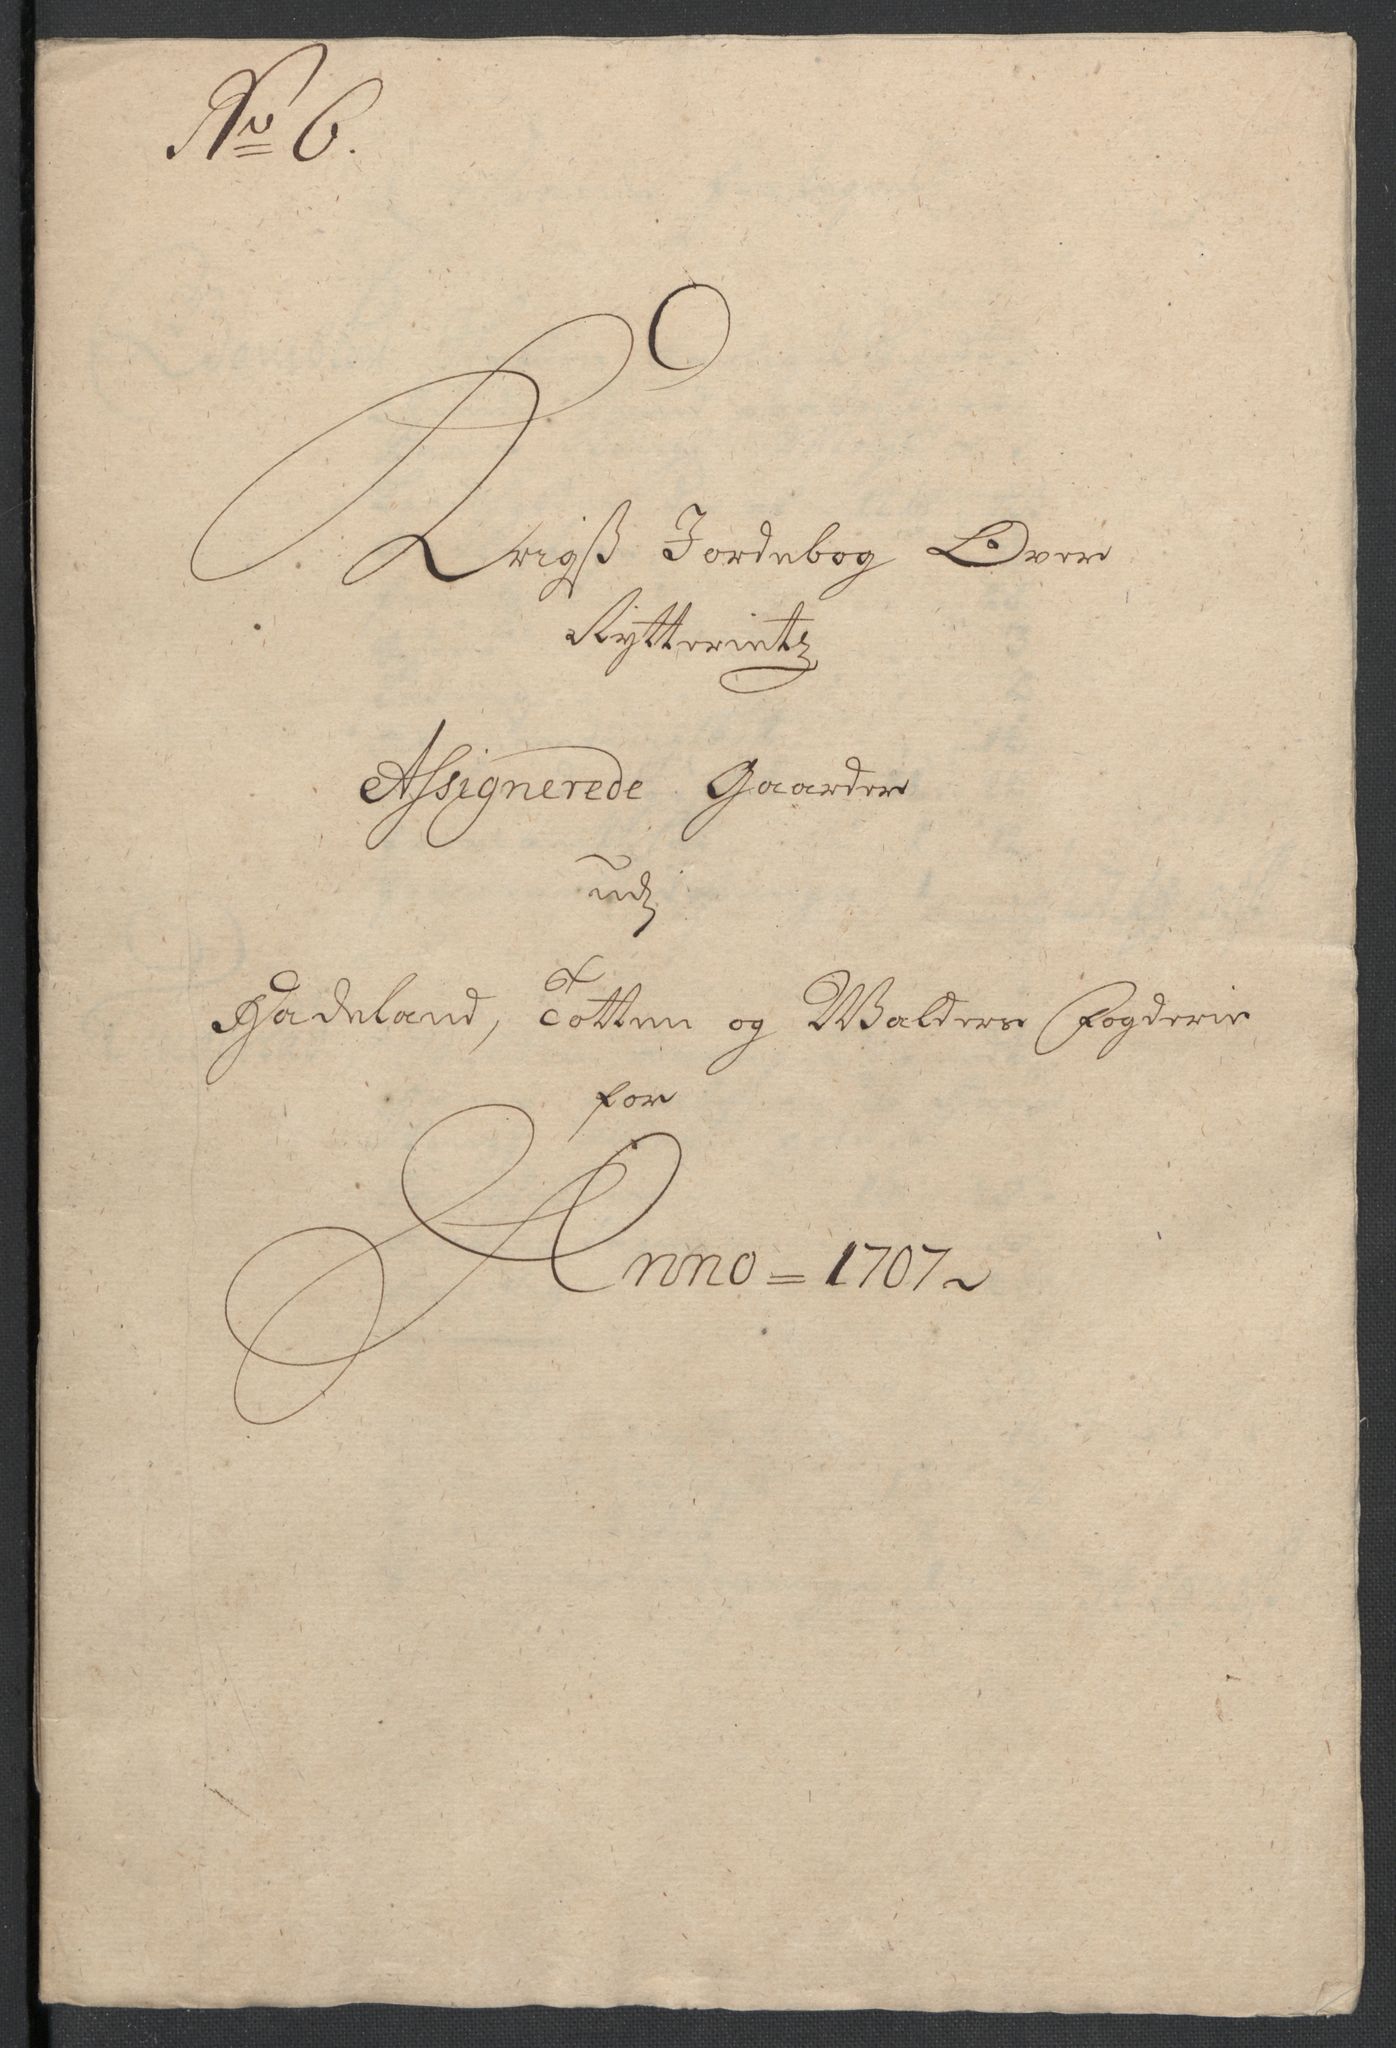 No 6.
Krigß Jordebog Over
Rytterietz
Assignerede Gaarder
udj
Hadeland, Totten og Walders Fogderie
for
Anno = 1707